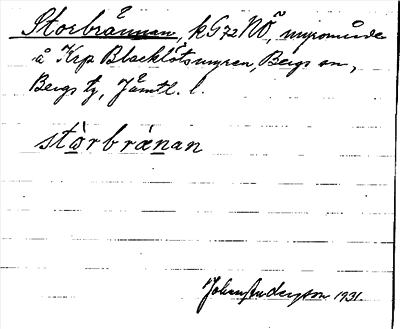 Storbrånnan, k G72 NÖ, myrområde
å Krp Blacklåtsmyren, Bergs sn,
Bergs tg, Jämtl. l.
stòrbränan
Johan Anderson 1931.